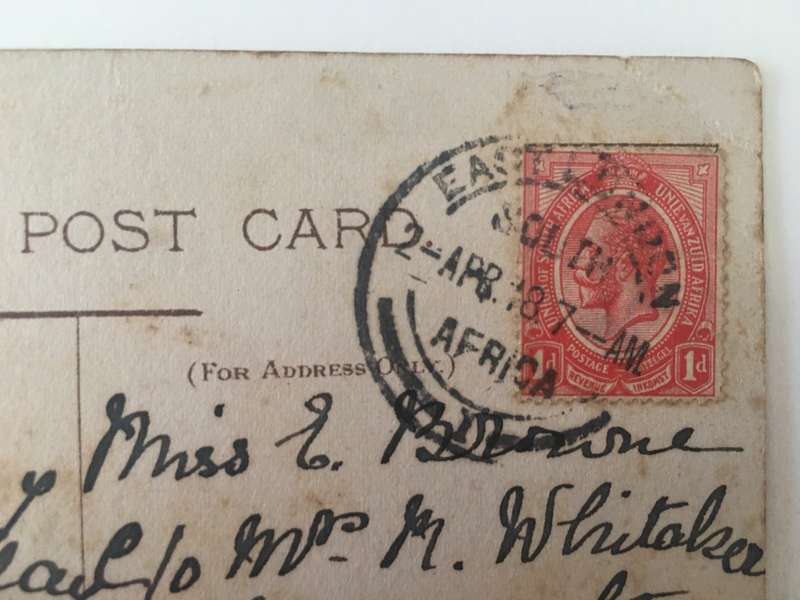 POST CARD
EAST LONDON
SOUTH
2-APR.18.7--AM
AFRICA
UNION OF SOUTH AFRICA
UNIE VAN ZUID AFRIKA
1d POSTAGE POSTZEGEL 1d
REVENUE INKOMST
(FOR ADDRESS ONLY.)
Miss E. Browne
c/o Mrs M. Whitaker